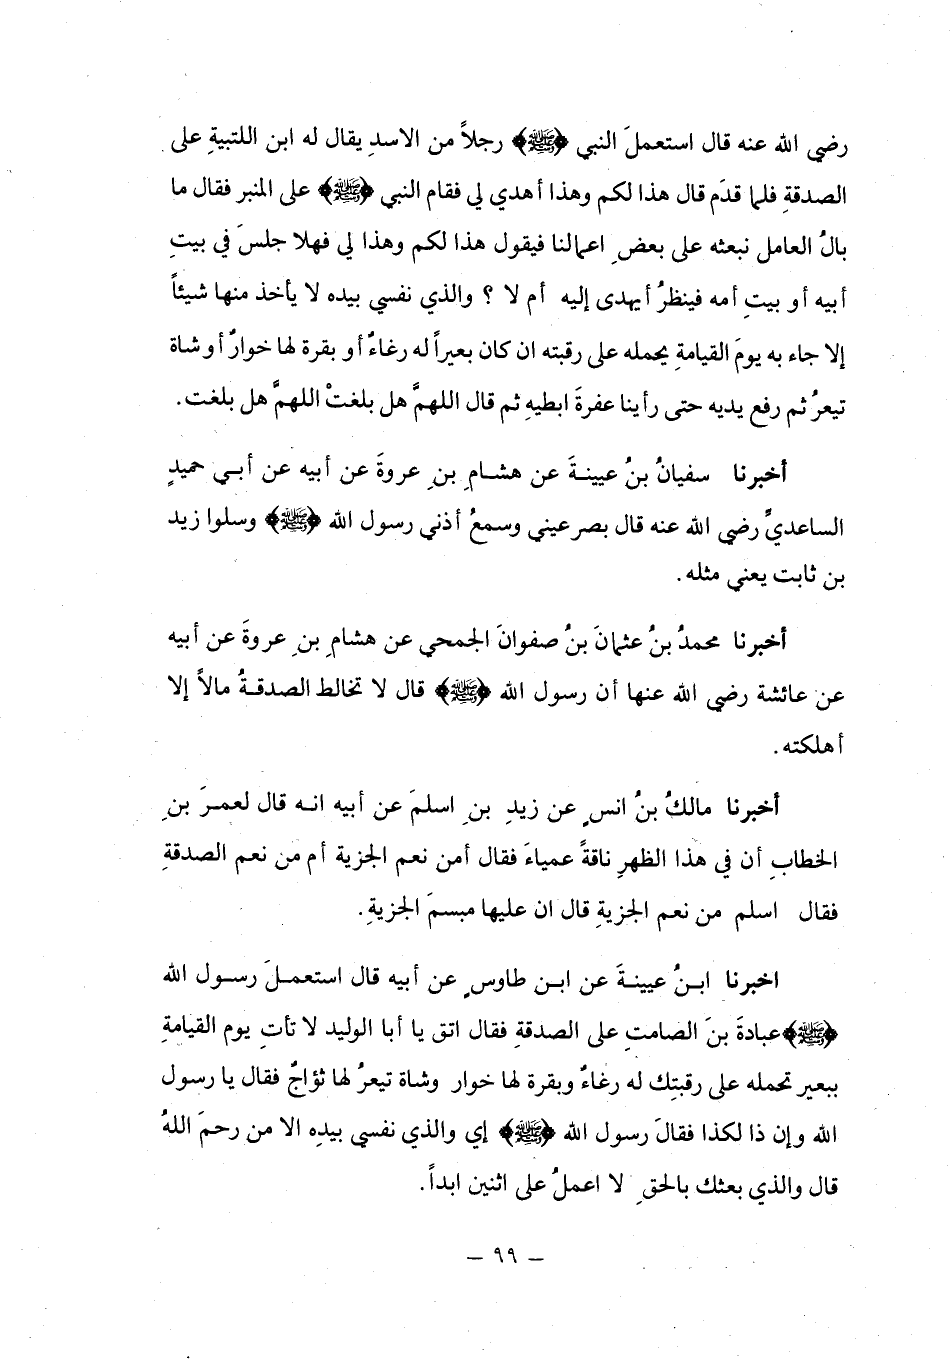 رضي الله عنه قال استعملَ النبي ﴿ﷺ﴾ رجلاً من الاسدِ يقال له ابن اللتبيةِ على
الصدقةِ فلما قدَم قال هذا لكم وهذا أهدي لي فقام النبي ﴿ﷺ﴾ على المنبر فقال ما
بالُ العامل نبعثه على بعضِ اعمالنا فيقول هذا لكم وهذا لي فهلا جلسَ في بيتِ
أبيه أو بيتِ أمه فينظرُ أيهدى إليه أم لا ؟ والذي نفسي بيده لا يأخذ منها شيئاً
إلا جاء به يومَ القيامةِ يحمله على رقبته ان كان بعيراً له رغاءٌ أو بقرة لها خوارٌ أو شاة
تيعرُ ثم رفع يديه حتى رأينا عفرةَ ابطيهِ ثم قال اللهمَّ هل بلغتْ اللهمَّ هل بلغت.
أخبرنا سفيانُ بنُ عيينةَ عن هشامِ بنِ عروةَ عن أبيه عن أبي حميدٍ
الساعديِّ رضي الله عنه قال بصر عيني وسمعُ أذني رسول الله ﴿ﷺ﴾ وسلوا زيد
بن ثابت يعني مثله.
أخبرنا محمدُ بنُ عثمانَ بنُ صفوانَ الجمحي عن هشامِ بنِ عروةَ عن أبيه
عن عائشة رضي الله عنها أن رسول الله ﴿ﷺ﴾ قال لا تخالط الصدقةُ مالاً إلا
أهلكته.
أخبرنا مالكُ بنُ انسٍ عن زيدِ بنِ اسلمَ عن أبيه انه قال لعمرَ بنِ
الخطابِ أن في هذا الظهرِ ناقةً عمياءَ فقال أمن نعم الجزية أم من نعم الصدقةِ
فقال اسلم من نعم الجزيةِ قال ان عليها مبسمَ الجزيةِ.
اخبرنا ابنُ عيينةَ عن ابن طاوسٍ عن أبيه قال استعملَ رسول الله
﴿ﷺ﴾ عبادةَ بنَ الصامتِ على الصدقةِ فقال اتق يا أبا الوليد لا تأتِ يوم القيامةِ
ببعير تحمله على رقبتِك له رغاءٌ وبقرة لها خوار وشاة تيعرُ لها ثؤاجٌ فقال يا رسول
الله وإن ذا لكذا فقالَ رسول الله ﴿ﷺ﴾ إي والذي نفسي بيدِه الا من رحمَ اللهُ
قال والذي بعثك بالحقِ لا اعملُ على اثنين ابداً.
– ٩٩ –